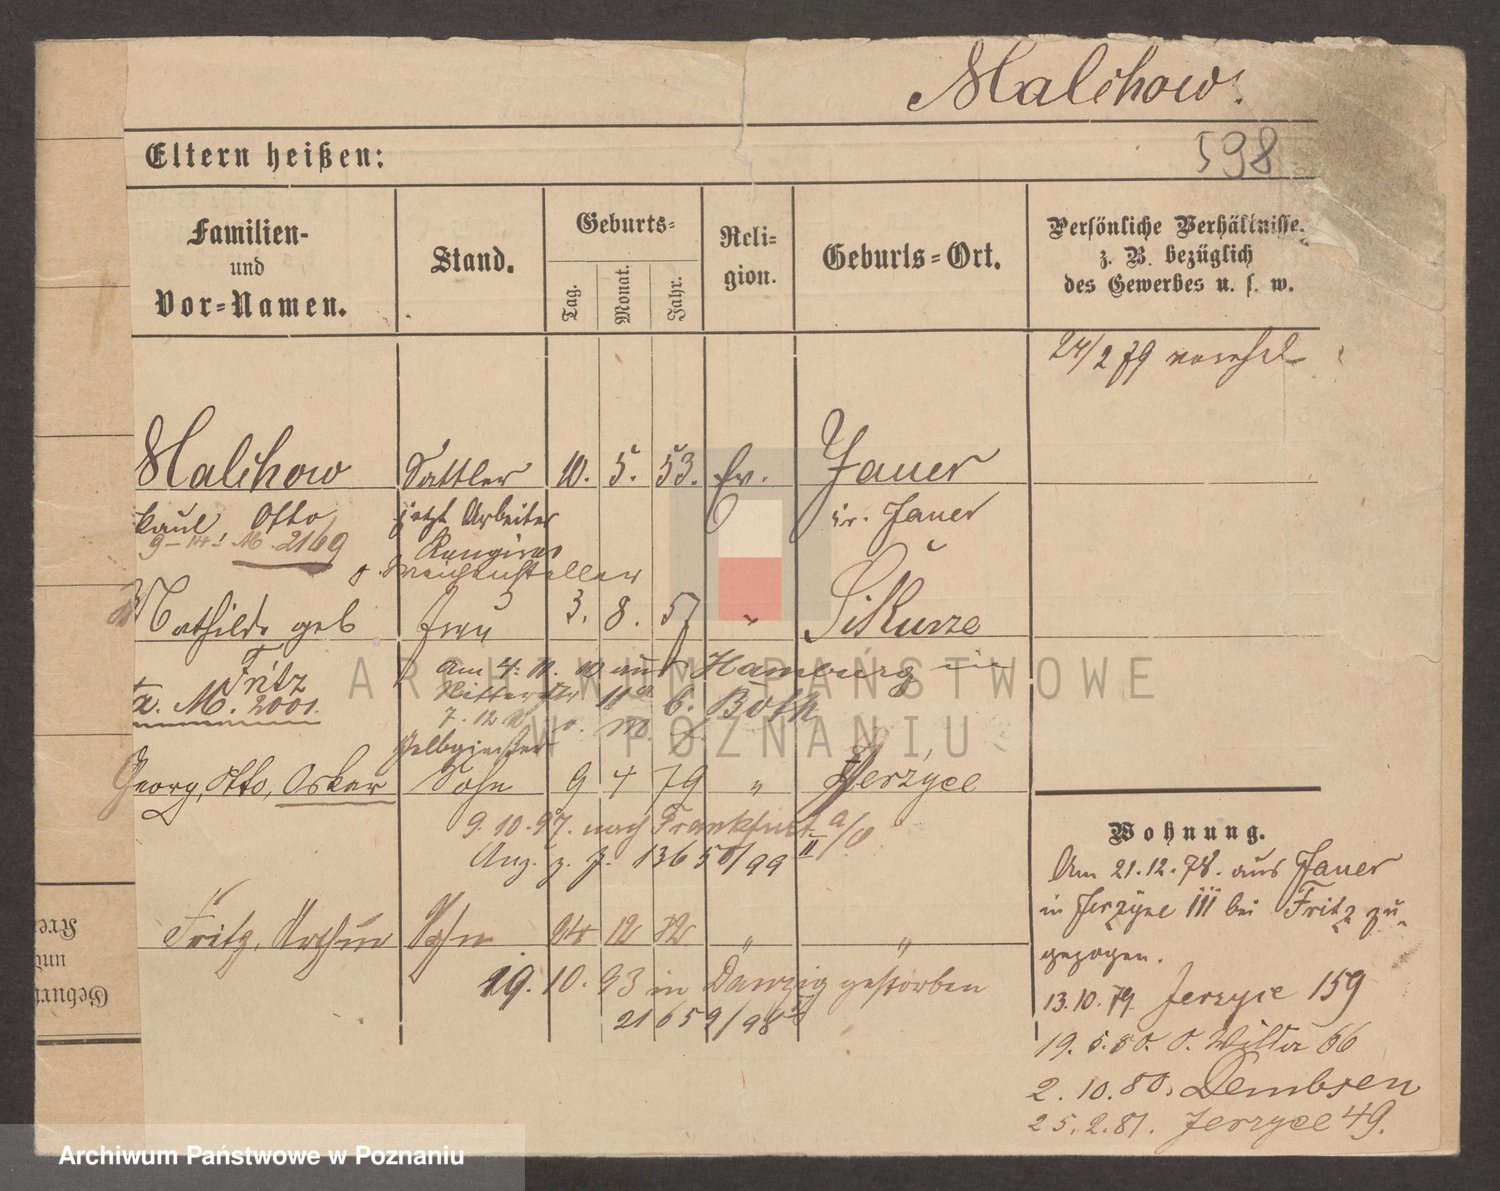 Malchow.
598
Eltern heißen:
Familien-
und
Vor-Namen.
Stand.
Geburts-
Tag.
Monat.
Jahr.
Reli-
gion.
Geburts-Ort.
Persönliche Verhältnisse.
z. B. bezüglich
des Gewerbes u. s. w.
24/2 79
Malchow Sattler 10. 5. 53. Ev. Jauer
Paul Otto jetzt Arbeiter Kr. Jauer
2169
Rangirer
Weichensteller
Mathilde geb Frau 3. 8. 57 " Sikurze
Fritz
a. M. 2001.
Am 4. 11. 10 aus Hamburg
Ritterstr 11a b. Both
7. 12
Gelbgießer
Georg, Otto, Oskar Sohn 9 4 79 " Jerzyce
9. 10. 97. nach Frankfurt a/O
Anz. z. J. 13650/99 II
Fritz, Arthur Sohn 24 12 82 " "
19. 10. 93 in Danzig gestorben
21659/98
Wohnung.
Am 21. 12. 78. aus Jauer
in Jerzyce III bei Fritz zu-
gezogen.
13. 10. 79. Jerzyce 159
19. 5. 80. O. Wilda 66
2. 10. 80. Dembsen
25. 2. 81. Jerzyce 49.
Geburt
und
Kre
ARCHIWUM PAŃSTWOWE
W POZNANIU
Archiwum Państwowe w Poznaniu